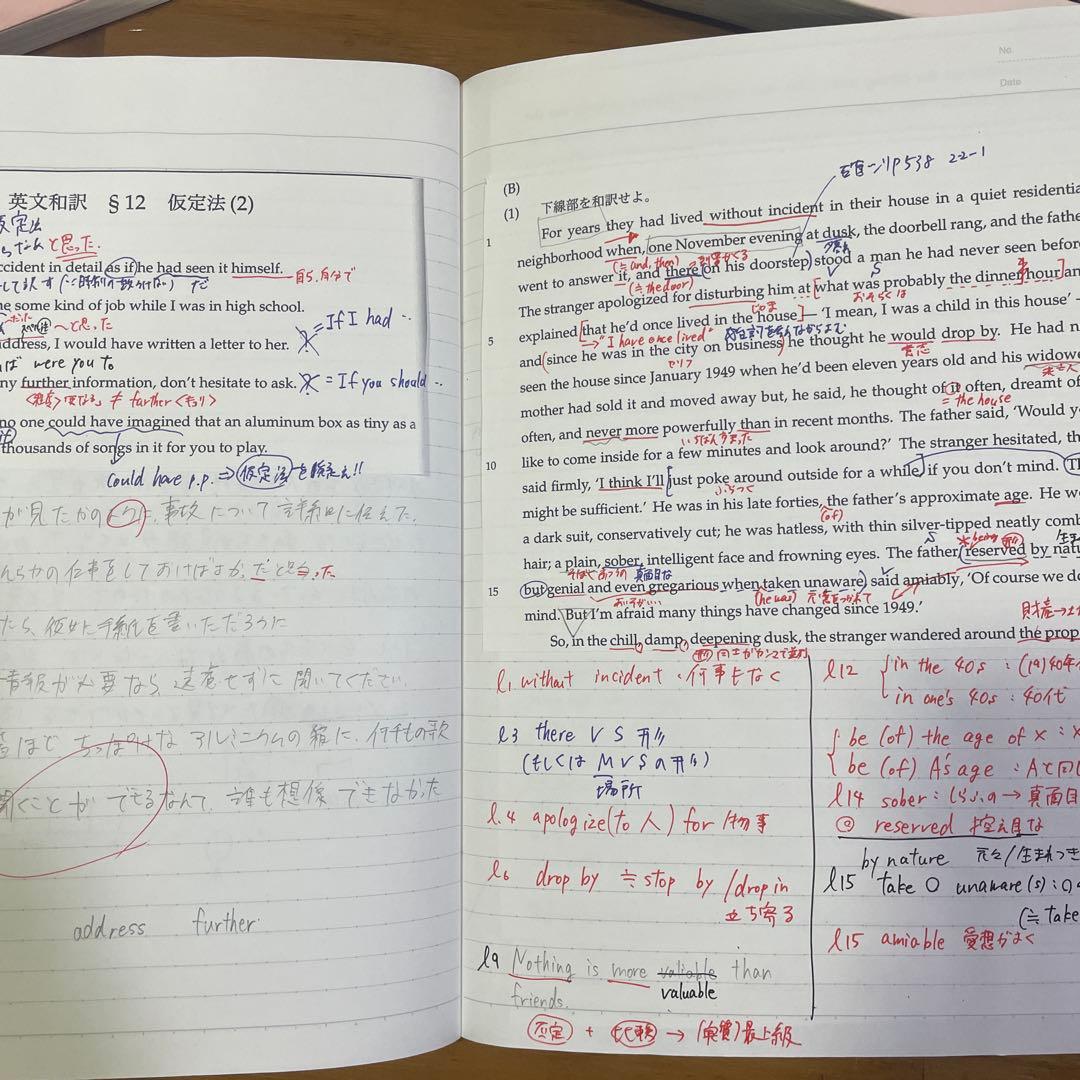 英文和訳 §12 仮定法(2)
仮定法
と思った.
ccident in detail as if he had seen it himself.
自ら,自分で
me some kind of job while I was in high school.
へと思った
=If I had ‥
address, I would have written a letter to her.
were you to
ny further information, don't hesitate to ask.
=If you should‥
≠ further
no one could have imagined that an aluminum box as tiny as a
thousands of songs in it for you to play.
could have p.p. ⇒ 仮定法
が見たかの
事故について詳細に伝えた.
んらかの仕事をしておけばよかったと思った
たら、彼女に手紙を書いただろうに
情報が必要なら、遠慮せずに聞いてください.
ほどちっぽけなアルミニウムの箱に、何千もの歌
聞くことができるなんて、誰も想像できなかった
address further
No.
Date
P538 22-1
(B)
(1) 下線部を和訳せよ。
1 For years they had lived without incident in their house in a quiet residentia
neighborhood when, one November evening at dusk, the doorbell rang, and the fathe
(≒and, then)
went to answer it, and there (on his doorstep) stood a man he had never seen before
(≒the door)
V S
The stranger apologized for disturbing him at [what was probably the dinner hour] an
おそらくは
5 explained [that he'd once lived in the house] — 'I mean, I was a child in this house' –
→"I have once lived"
and (since he was in the city on business) he thought he would drop by. He had n
意志
seen the house since January 1949 when he'd been eleven years old and his widowe
mother had sold it and moved away but, he said, he thought of it often, dreamt of
= the house
often, and never more powerfully than in recent months. The father said, 'Would yo
10 like to come inside for a few minutes and look around?' The stranger hesitated, th
said firmly, 'I think I'll [just poke around outside for a while] if you don't mind. Th
might be sufficient.' He was in his late forties, the father's approximate age. He wo
(of)
a dark suit, conservatively cut; he was hatless, with thin silver-tipped neatly comb
being
hair; a plain, sober, intelligent face and frowning eyes. The father (reserved by natu
真面目な
15 but genial and even gregarious when taken unaware) said amiably, 'Of course we do
(he was)
mind. But I'm afraid many things have changed since 1949.'
So, in the chill, damp, deepening dusk, the stranger wandered around the prop
l1 without incident : 何事もなく
l3 there V S 形
(もしくは M V S の形)
場所
l.4 apologize (to 人) for 物事
l6 drop by ≒ stop by / drop in
立ち寄る
l9 Nothing is more valuable than
valuable
friends.
否定 + 比較 → (実質)最上級
l12 in the 40s : (19)40年
in one's 40s : 40代
be (of) the age of x : x
be (of) A's age : Aと同じ
l14 sober : しらふの → 真面目
reserved 控え目な
by nature 元々/生まれつき
l15 take O unaware(s) : O
(≒ take
l15 amiable 愛想がよく